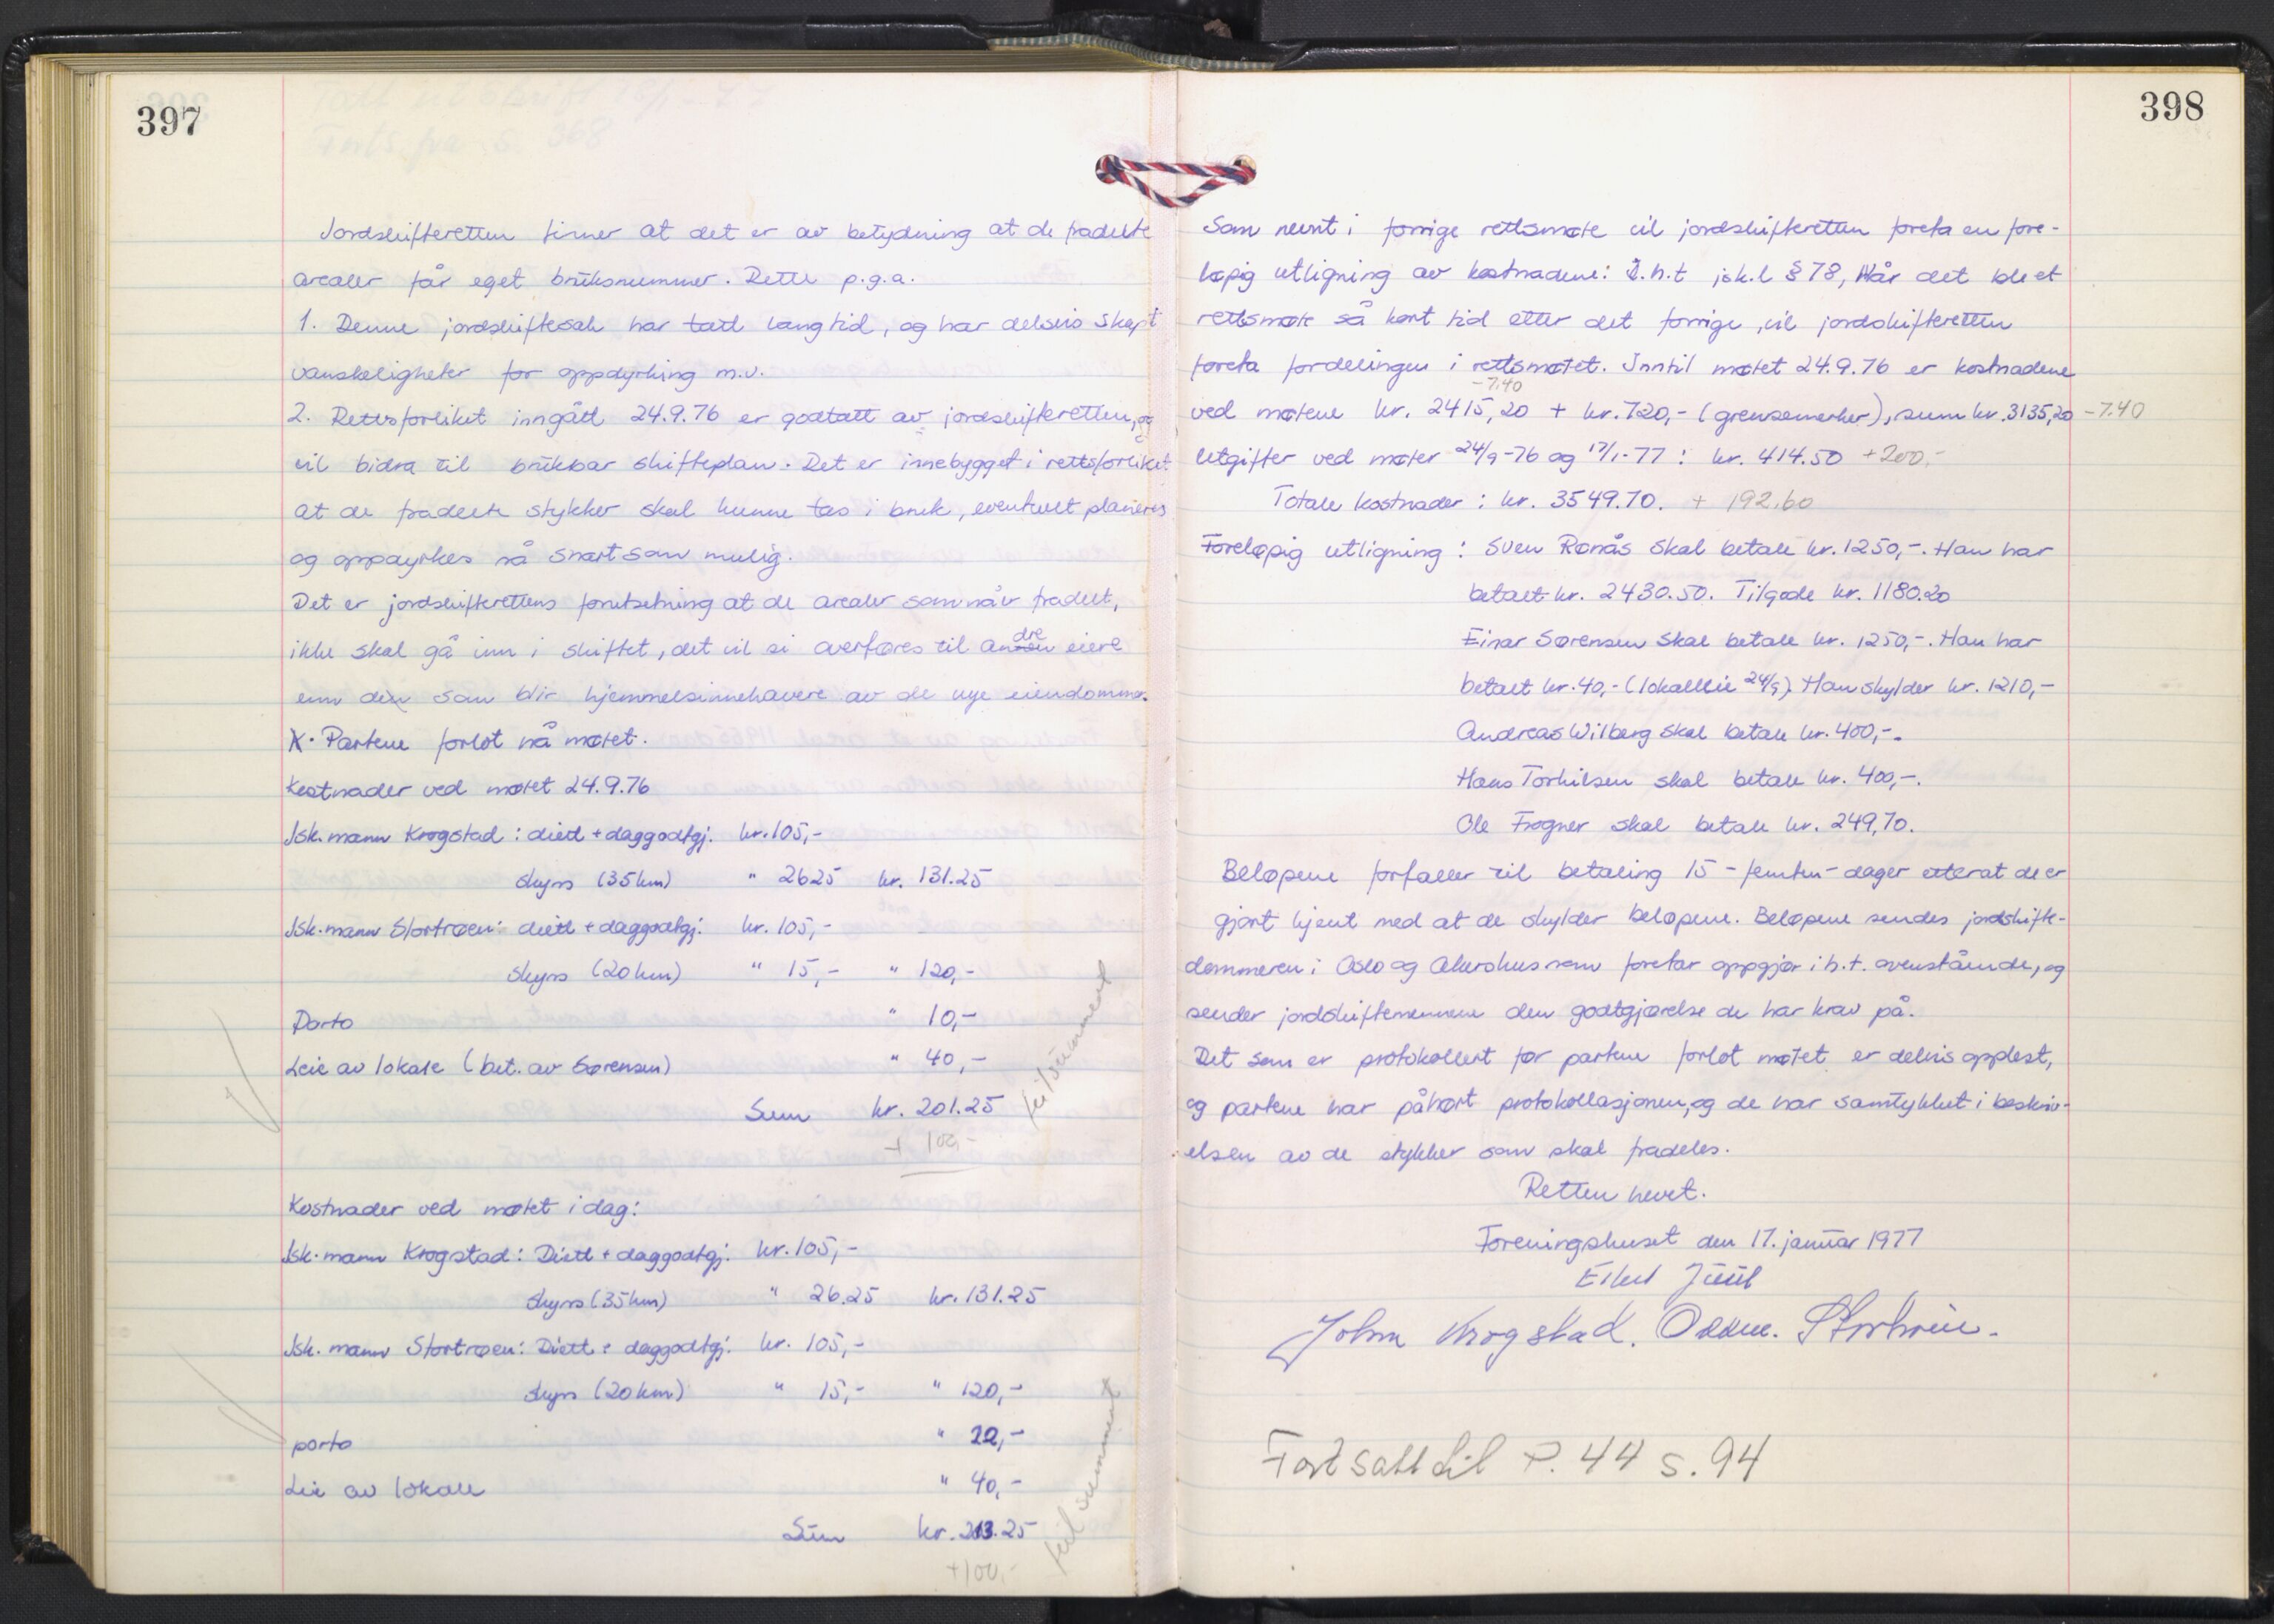 397
Jordskifteretten finner at det er av betydning at de fradelte
arealer får eget bruksnummer. Dette p.g.a.
1. Denne jordskiftesak har tatt lang tid, og har delvis skapt
vanskeligheter for oppdyrking m.v.
2. Rettsforliket inngått 24.9.76 er godtatt av jordskifteretten, og
vil bidra til brukbar skifteplan. Det er innebygget i rettsforliket
at de fradelte stykker skal kunne tas i bruk, eventuelt planeres
og oppdyrkes så snart som mulig.
Det er jordskifterettens forutsetning at de arealer som nå er fradelt,
ikke skal gå inn i skiftet, det vil si overføres til andre eiere
enn den som blir hjemmelsinnehavere av de nye eiendommer.
X. Partene forlot nå møtet.
Kostnader ved møtet 24.9.76
Jsk.mann Krogstad: diett + daggodtgj. kr. 105,-
skyss (35 km) " 26.25 kr. 131.25
Jsk.mann Stortrøen: diett + daggodtgj. kr. 105,-
skyss (20 km) " 15,- " 120,-
Porto " 10,-
Leie av lokale (bet. av Sørensen) " 40,-
Sum kr. 201.25
+ 100,-
feilsummert
Kostnader ved møtet i dag:
Jsk.mann Krogstad: Diett + daggodtgj. kr. 105,-
skyss (35 km) " 26.25 kr. 131.25
Jsk.mann Stortrøen: Diett + daggodtgj. kr. 105,-
skyss (20 km) " 15,- " 120,-
porto " 22,-
Leie av lokale " 40,-
Sum kr. 213.25
+100,-
feilsummert
398
Som nevnt i forrige rettsmøte vil jordskifteretten foreta en fore-
løpig utligning av kostnadene i h.t jsk.l § 78, Når det ble et
rettsmøte så kort tid etter det forrige, vil jordskifteretten
foreta fordelingen i rettsmøtet. Inntil møtet 24.9.76 er kostnadene
-7.40
ved møtene kr. 2415,20 + kr. 720,- (grensemerker), sum kr. 3135,20 -7.40
Utgifter ved møter 24/9-76 og 17/1-77: kr. 414.50 +200,-
Totale kostnader: kr. 3549.70. + 192.60
Foreløpig utligning: Sven Rønås skal betale kr. 1250,-. Han har
betalt kr. 2430.50. Tilgode kr. 1180.20
Einar Sørensen skal betale kr. 1250,-. Han har
betalt kr. 40,- (lokalleie 24/9). Han skylder kr. 1210,-
Andreas Wilberg skal betale kr. 400,-.
Hans Torkilsen skal betale kr. 400,-.
Ole Frogner skal betale kr. 249,70.
Beløpene forfaller til betaling 15 - femten - dager etterat de er
gjort kjent med at de skylder beløpene. Beløpene sendes jordskifte-
dommeren i Oslo og Akershus som foretar oppgjør i h.t. ovenstående, og
sender jordskiftemennene den godtgjørelse de har krav på.
Det som er protokollert før partene forlot møtet er delvis opplest,
og partene har påhørt protokollasjonen, og de har samtykket i beskriv-
elsen av de stykker som skal fradeles.
Retten hevet.
Foreningshuset den 17. januar 1977
Juul
John Krogstad.
Fortsatt til P. 44 s. 94